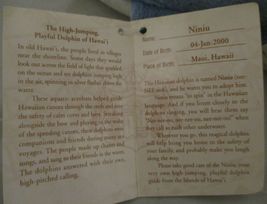 The High-Jumping,
Playful Dolphin of Hawai'i
In old Hawai'i, the people lived in villages
near the shoreline. Some days they would
look out across the field of light that sparkled
on the ocean and see dolphins jumping high
in the air, spinning in silver flashes down the
water.
These aquatic acrobats helped guide
Hawaiian canoes through the reefs and into
the safety of calm coves and bays. Streaking
alongside the boat and playing in the wake
of the speeding canoes, these dolphins were
companions and friends during many sea
voyages. The people made up chants and
songs, and sang to their friends in the water.
The dolphins answered with their own,
high-pitched calling.
Name: Niniu
Date of Birth: 04-Jan-2000
Place of Birth: Maui, Hawaii
This Hawaiian dolphin is named Niniu
and he wants you to adopt him.
Niniu means to "spin" in the Hawaiian
language. And if you listen closely to the
dolphin singing, you will hear them say
when
they call to each other underwater.
Wherever you go, this magical dolphin
will help bring you home to the safety of
your family, and probably make you laugh
along the way.
Please take good care of the Niniu, your
very own high jumping, playful dolphin
guide from the islands of Hawai'i.